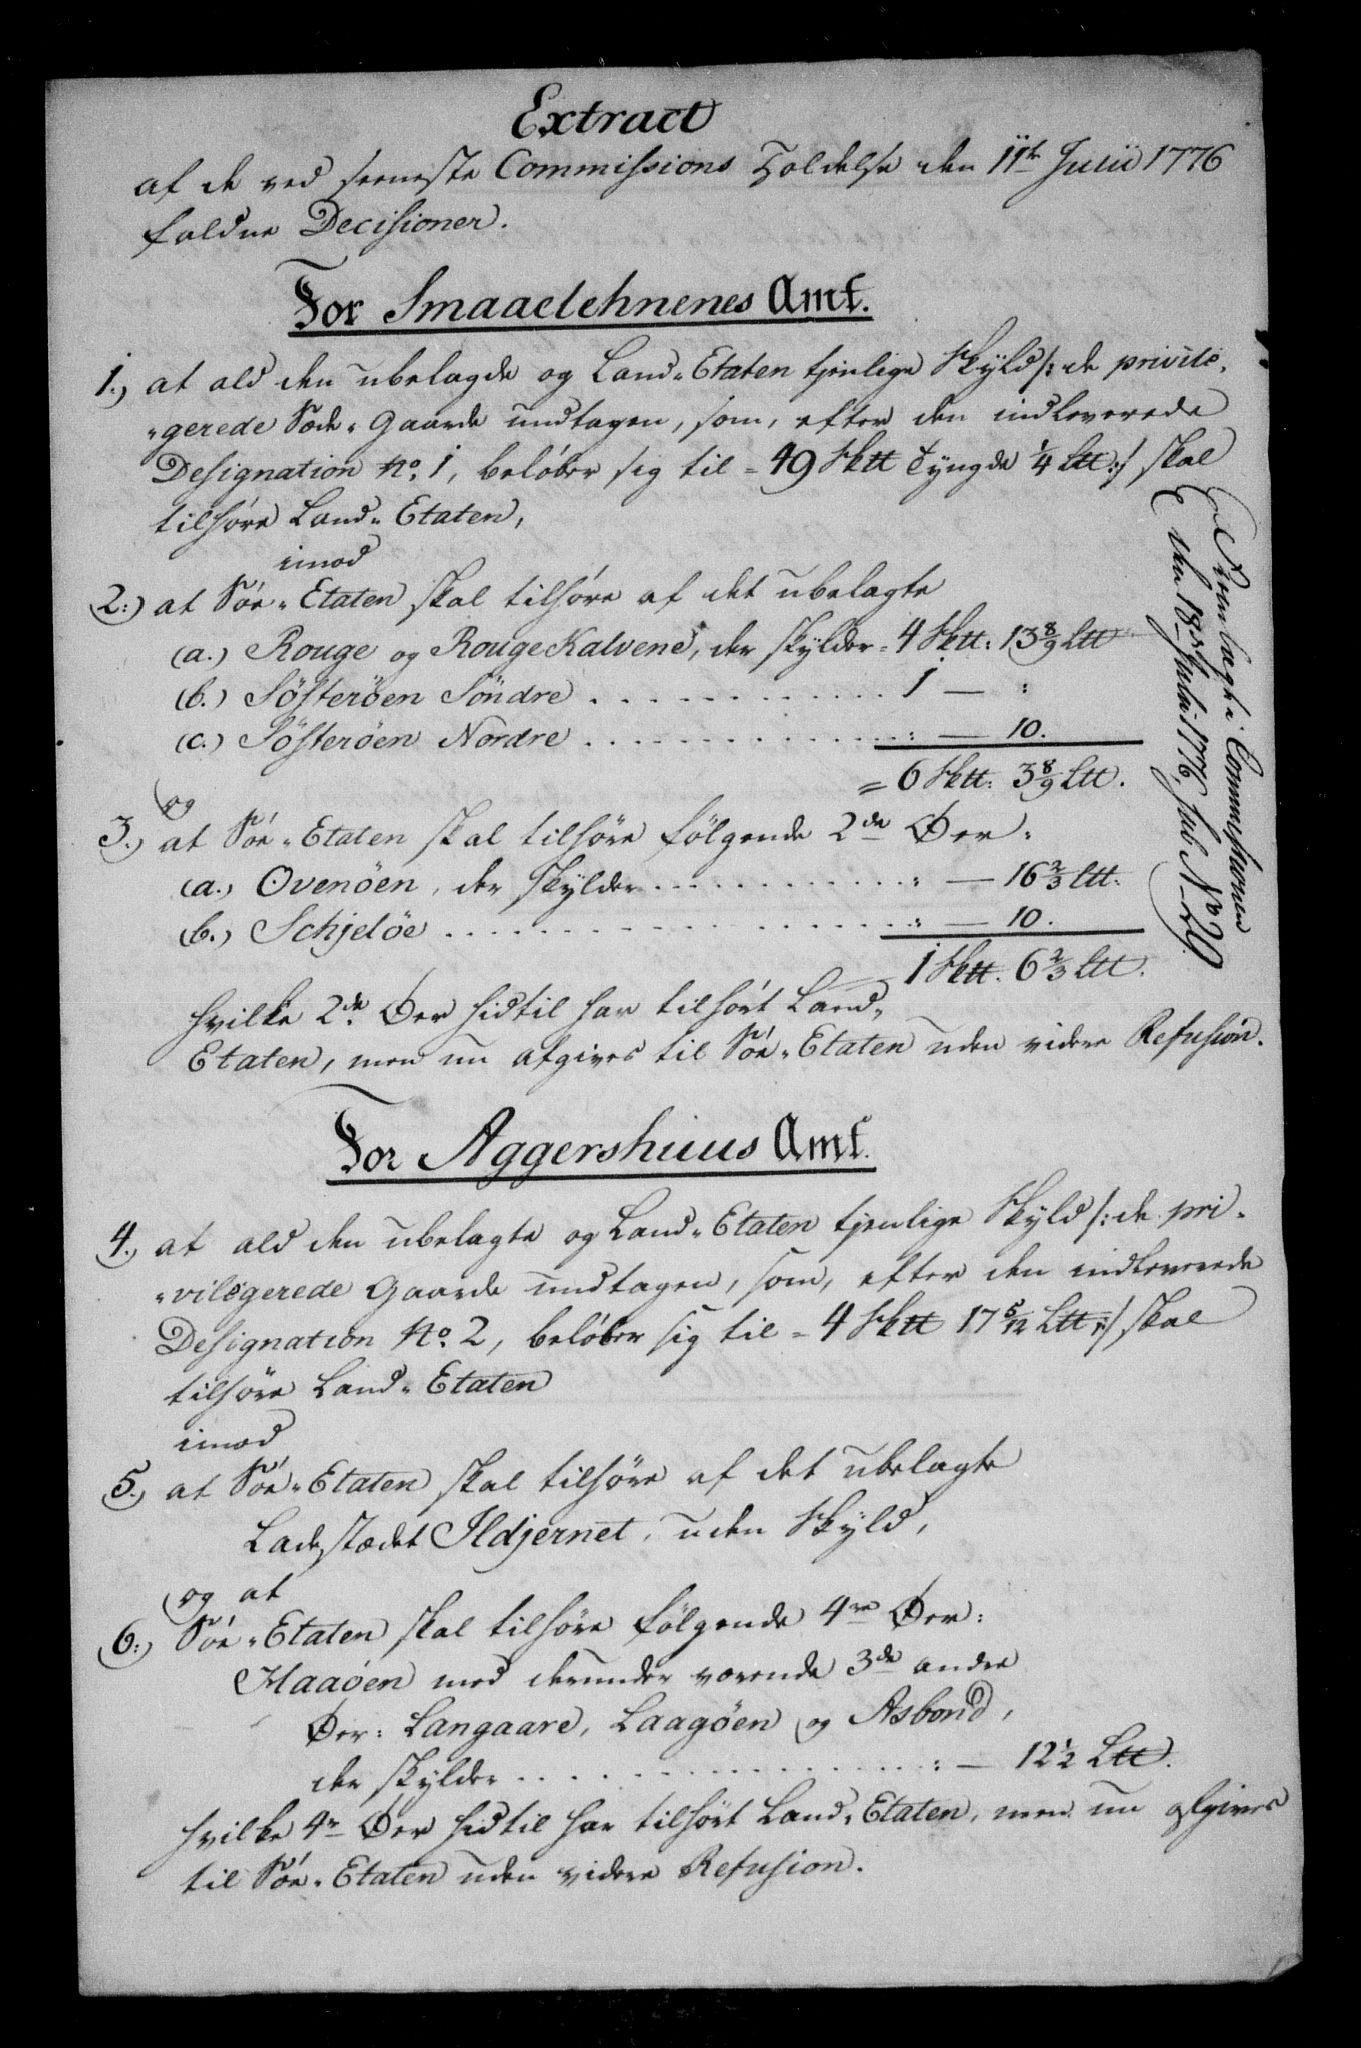 Extract
af de ved seeneste Commissions Holdelse den 11te Julii 1776
faldne Decisioner.
For Smaaelehnenes Amt.
1.) at ald den ubelagde og Land-Etaten tjenlige Skyld /: de privile-
-gerede Sæde-Gaarde undtagen, som, efter den indleverede
Designation No. 1, beløber sig til = 49 Sktt Tyngde 1/4 Ltt :/ skal
tilhøre Land-Etaten,
imod
2.) at Søe-Etaten skal tilhøre af det ubelagte
(a.) Rouge og RougeKalvene, der skylder = 4 Sktt: 13 8/9 Ltt
(b.) Søsterøen Søndre . . . . . . . . . . . . 1 — :
(c.) Søsterøen Nordre . . . . . . . . . . . . : — 10.
= 6 Sktt: 3 8/9 Ltt.
og
3.) at Søe-Etaten skal tilhøre følgende 2de Øer:
(a.) Ovenøen, der skylder . . . . . . . . . . : — 16 2/3 Ltt.
(b.) Schjeløe . . . . . . . . . . . . . . . . : — 10.
1 Sktt. 6 2/3 Ltt.
hvilke 2de Øer hidtil har tilhørt Land-
Etaten, men nu afgives til Søe-Etaten uden videre Refusion.
For Aggershuus Amt.
4.) at ald den ubelagte og Land-Etaten tjenlige Skyld /: de pri-
-vilegerede Gaarde undtagen, som, efter den indleverede
Designation No. 2, beløber sig til = 4 Sktt 17 5/12 Ltt :/ skal
tilhøre Land-Etaten
imod
5.) at Søe-Etaten skal tilhøre af det ubelagte
Ladestædet Ildjernet, uden Skyld,
og at
6.) Søe-Etaten skal tilhøre følgende 4re Øer:
Haaøen med derunder værende 3de andre
Øer: Langaare, Laagøen og Asbond,
der skylder . . . . . . . . . . . . . . . : — 12 1/2 Ltt.
hvilke 4re Øer hidtil har tilhørt Land-Etaten, men nu afgives
til Søe-Etaten uden videre Refusion.
Fremlagt i Commissionen
den 18de Julii 1776, sub No 20.